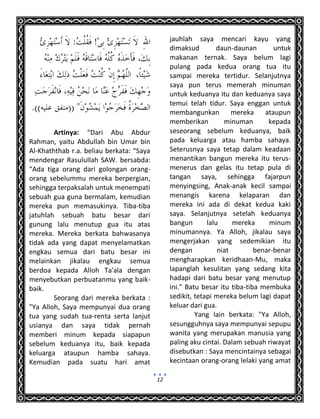 اللهِ لَا تَسْتَهْزِئْ بِيْ! فَقُلْتُ: لَا أَسْتَهْزِئُ
بِكَ، فَأَخَذَهُ كُلَّهُ فَاسْتَاقَهُ فَلَمْ يَتْرُكْ مِنْهُ
شَيْئًا، اَللّٰهُمَّ إِنْ كُنْتُ فَعَلْتُ ذٰلِكَ ابْتِغَاءَ
وَجْهِكَ فَافْرُجْ عَنَّا مَا نَحْنُ فِيْهِ، فَانْفَرَجَتِ
الصَّخْرَةُ فَخَرَجُوْا يَمْشُوْنَ" ((متفق عليه)).
Artinya: "Dari Abu Abdur
Rahman, yaitu Abdullah bin Umar bin
Al-Khaththab r.a. beliau berkata: "Saya
mendengar Rasulullah SAW. bersabda:
"Ada tiga orang dari golongan orang-
orang sebelummu mereka berpergian,
sehingga terpaksalah untuk menempati
sebuah gua guna bermalam, kemudian
mereka pun memasukinya. Tiba-tiba
jatuhlah sebuah batu besar dari
gunung lalu menutup gua itu atas
mereka. Mereka berkata bahwasanya
tidak ada yang dapat menyelamatkan
engkau semua dari batu besar ini
melainkan jikalau engkau semua
berdoa kepada Alloh Ta'ala dengan
menyebutkan perbuatanmu yang baik-
baik.
Seorang dari mereka berkata :
"Ya Alloh, Saya mempunyai dua orang
tua yang sudah tua-renta serta lanjut
usianya dan saya tidak pernah
memberi minum kepada siapapun
sebelum keduanya itu, baik kepada
keluarga ataupun hamba sahaya.
Kemudian pada suatu hari amat
jauhlah saya mencari kayu yang
dimaksud daun-daunan untuk
makanan ternak. Saya belum lagi
pulang pada kedua orang tua itu
sampai mereka tertidur. Selanjutnya
saya pun terus memerah minuman
untuk keduanya itu dan keduanya saya
temui telah tidur. Saya enggan untuk
membangunkan mereka ataupun
memberikan minuman kepada
seseorang sebelum keduanya, baik
pada keluarga atau hamba sahaya.
Seterusnya saya tetap dalam keadaan
menantikan bangun mereka itu terus-
menerus dan gelas itu tetap pula di
tangan saya, sehingga fajarpun
menyingsing, Anak-anak kecil sampai
menangis karena kelaparan dan
mereka ini ada di dekat kedua kaki
saya. Selanjutnya setelah keduanya
bangun lalu mereka minum
minumannya. Ya Alloh, jikalau saya
mengerjakan yang sedemikian itu
dengan niat benar-benar
mengharapkan keridhaan-Mu, maka
lapanglah kesulitan yang sedang kita
hadapi dari batu besar yang menutup
ini." Batu besar itu tiba-tiba membuka
sedikit, tetapi mereka belum lagi dapat
keluar dari gua.
Yang lain berkata: "Ya Alloh,
sesungguhnya saya mempunyai sepupu
wanita yang merupakan manusia yang
paling aku cintai. Dalam sebuah riwayat
disebutkan : Saya mencintainya sebagai
kecintaan orang-orang lelaki yang amat
12